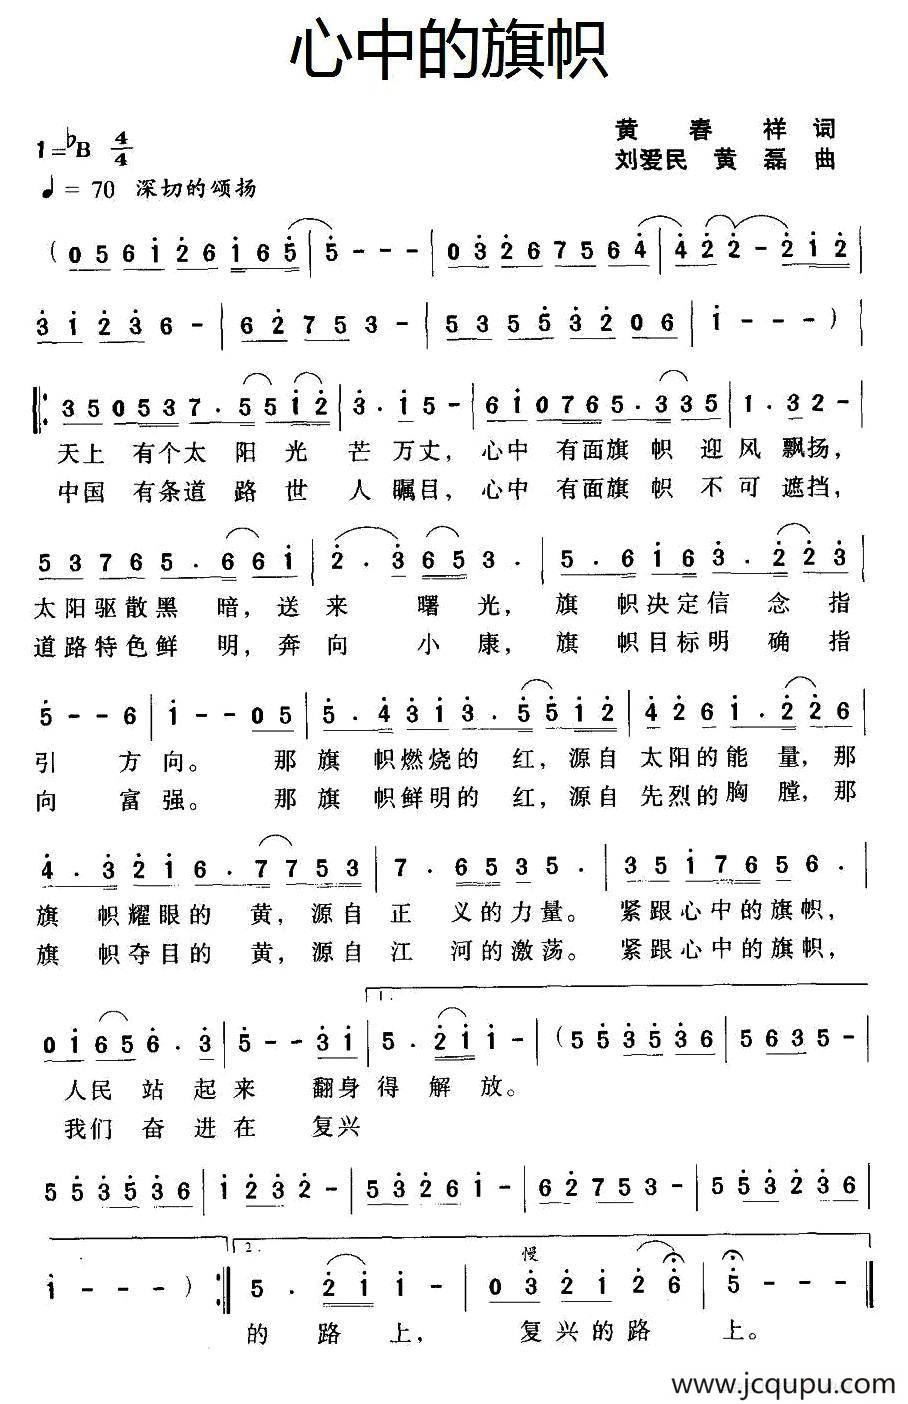 心中的旗帜
黄春祥 词
1=♭B 4/4
刘爱民 黄磊 曲
♩= 70 深切的颂扬
( 0 5 6 i 2 6 i 6 5 | 5 - - - | 0 3 2 6 7 5 6 4 | 4 2 2 - 2 i 2 |
3 i 2 3 6 - | 6 2 7 5 3 - | 5 3 5 5 3 2 0 6 | i - - - ) |
3 5 0 5 3 7 . 5 5 i 2 | 3 . i 5 - | 6 i 0 7 6 5 . 3 3 5 | 1 . 3 2 - |
天上 有个太 阳 光 芒 万丈，心中 有面旗 帜 迎 风 飘扬，
中国 有条道 路 世 人 瞩目，心中 有面旗 帜 不 可 遮挡，
5 3 7 6 5 . 6 6 i | 2 . 3 6 5 3 . | 5 . 6 i 6 3 . 2 2 3 |
太阳驱散黑 暗，送 来 曙 光，旗 帜决定信 念 指
道路特色鲜 明，奔 向 小 康，旗 帜目标明 确 指
5 - - 6 | i - - 0 5 | 5 . 4 3 i 3 . 5 5 i 2 | 4 2 6 i . 2 2 6 |
引 方 向。 那 旗 帜燃烧的 红，源自 太阳的能 量，那
向 富 强。 那 旗 帜鲜明的 红，源自 先烈的胸 膛，那
4 . 3 2 i 6 . 7 7 5 3 | 7 . 6 5 3 5 . | 3 5 i 7 6 5 6 . |
旗 帜耀眼的 黄，源自 正 义的力量。 紧跟心中的旗帜，
旗 帜夺目的 黄，源自 江 河的激荡。 紧跟心中的旗帜，
1.
0 i 6 5 6 . 3 | 5 - - 3 i | 5 . 2 i i - | ( 5 5 3 5 3 6 | 5 6 3 5 - |
人民 站 起 来 翻身 得 解 放。
我们 奋 进 在 复兴
5 5 3 5 3 6 | i 2 3 2 - | 5 3 2 6 i - | 6 2 7 5 3 - | 5 5 3 2 3 6 |
2. 慢
i - - - ) :| 5 . 2 i i - | 0 3 2 i 2 6 | 5 - ‖
的 路 上， 复兴的路 上。
www.jcqupu.com